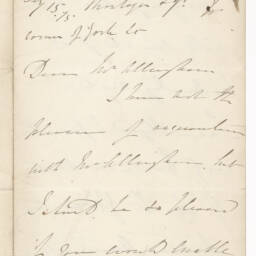 corner of York
Dear Mr Allingham
I have not the
pleasure of acquaintance
with Mr Allingham, but
I should be so pleased
if you would enable